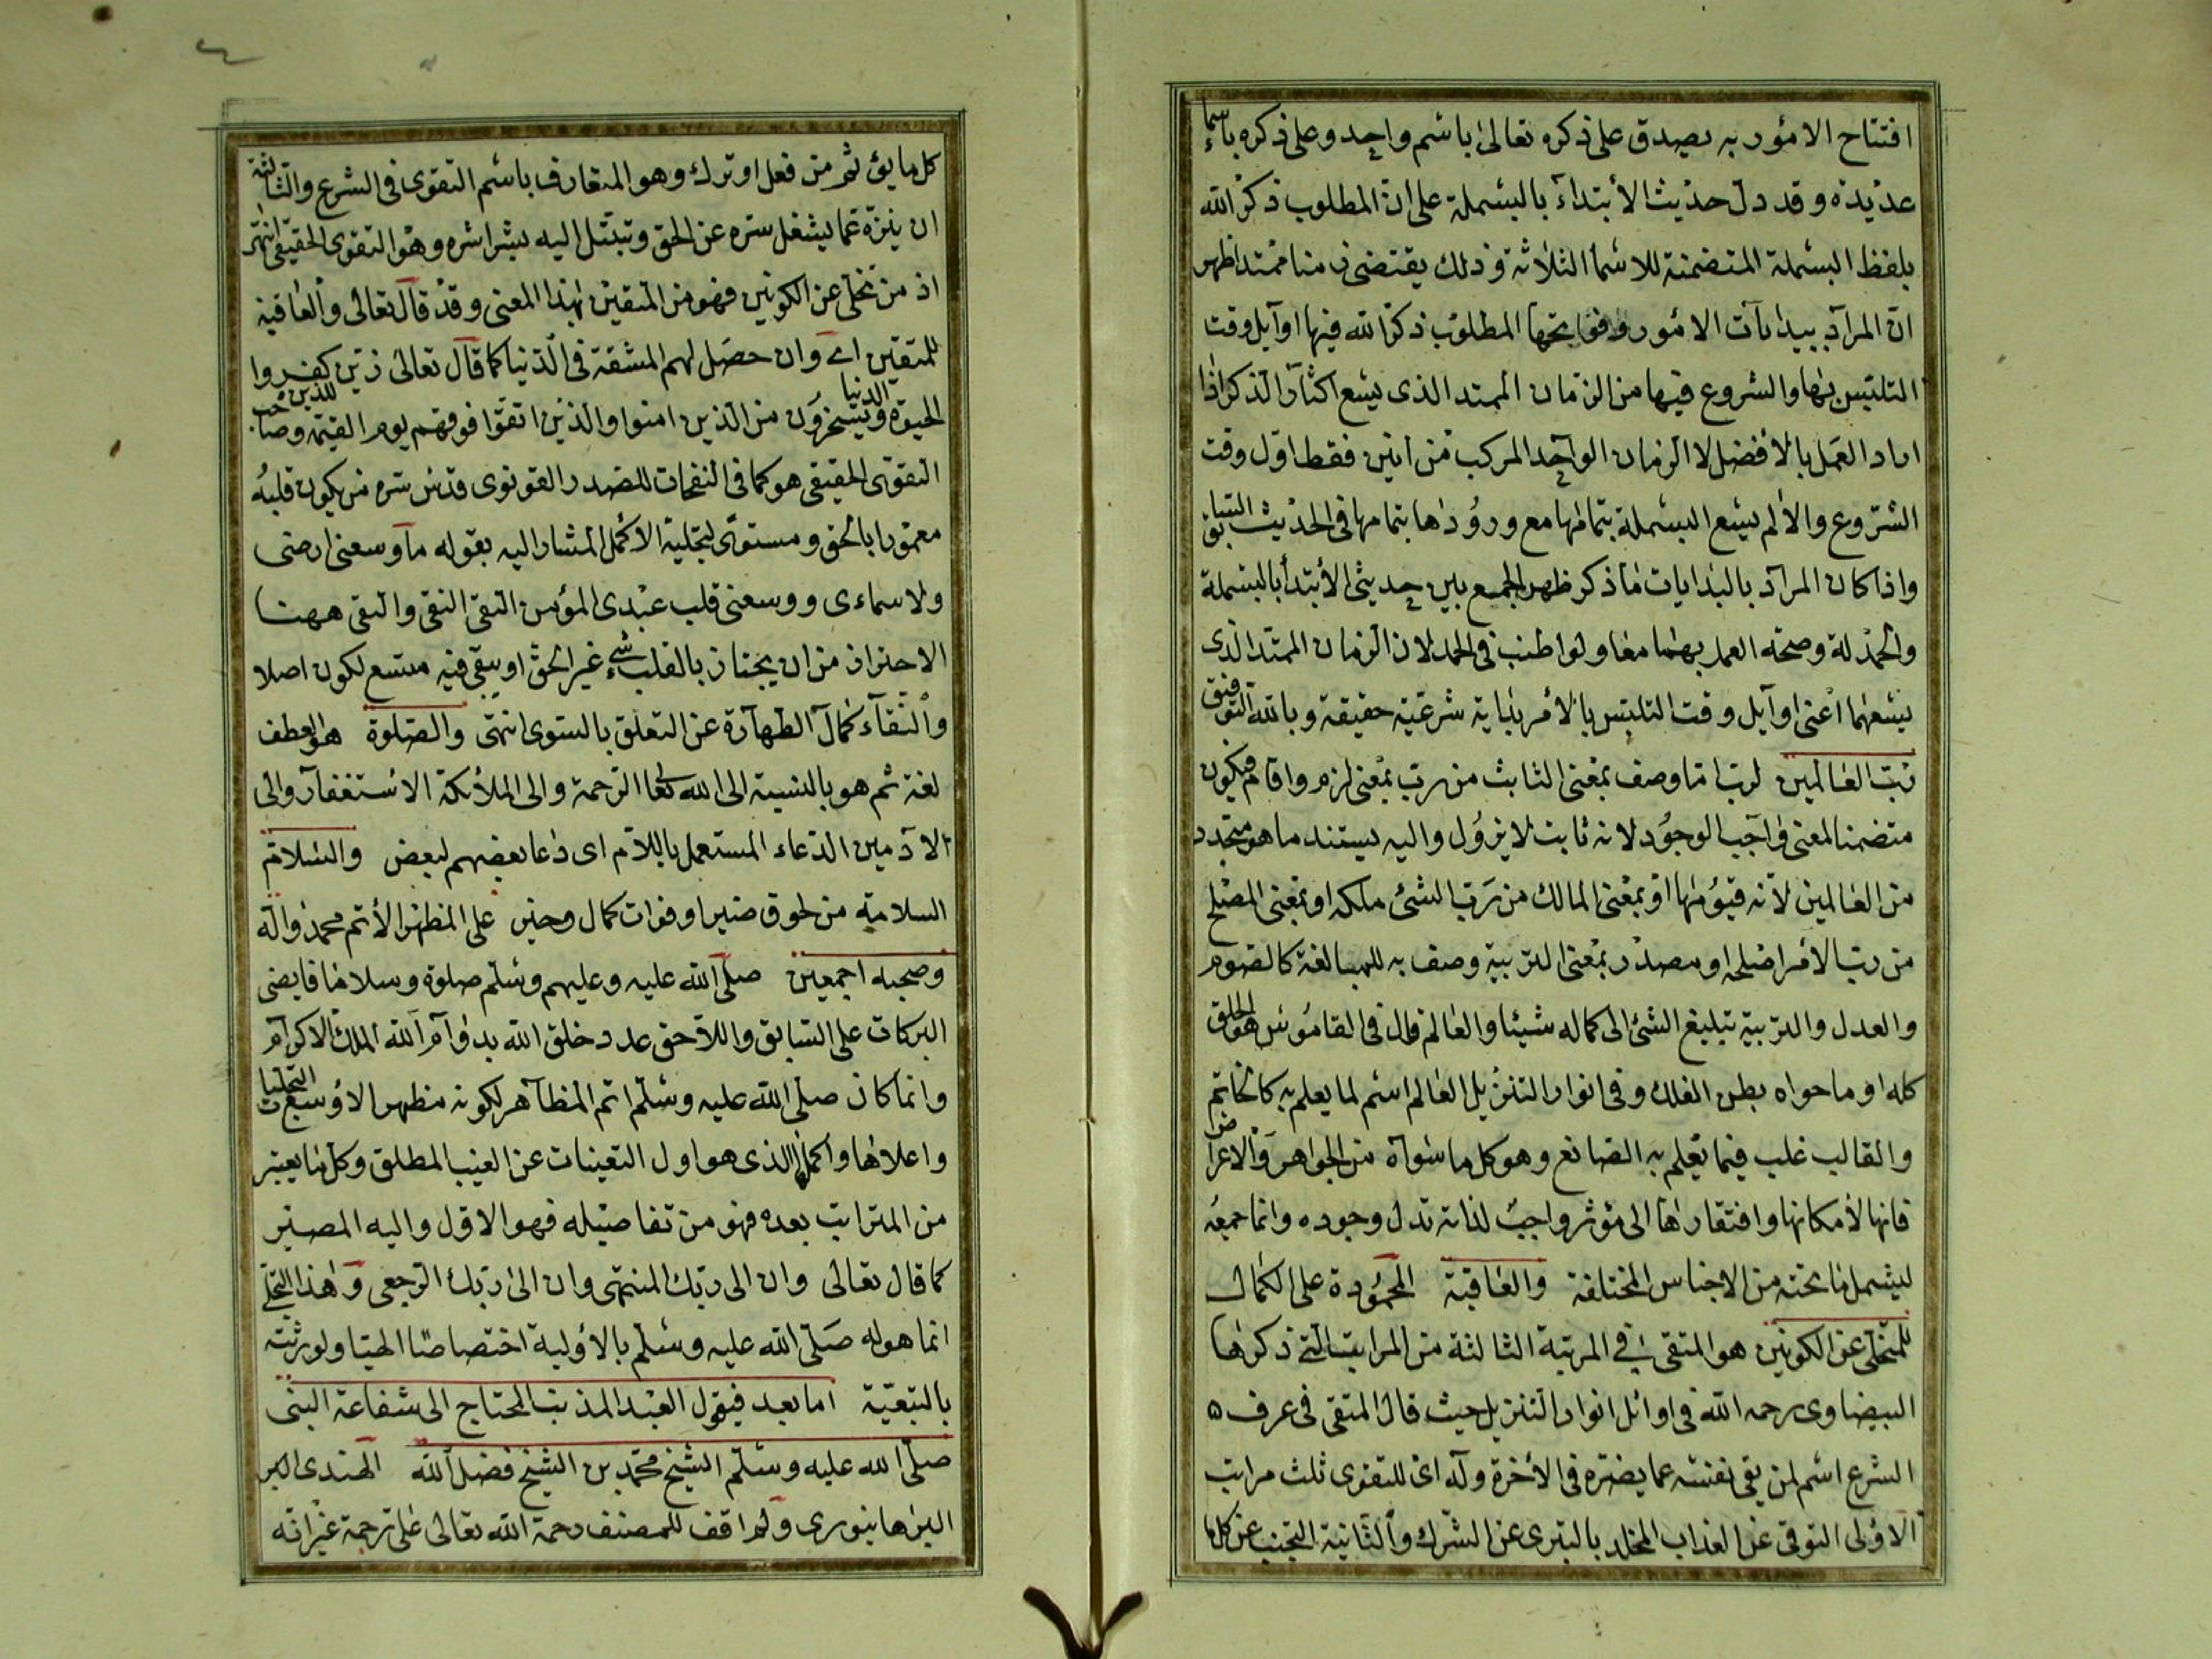 افتتاح الامور به يصدق على ذكره تعالى باسم واحد وعلى ذكره باسماء
عديدة وقد دل حديث الابتداء بالبسملة على ان المطلوب ذكر الله
بلفظ البسملة المتضمنة للاسما الثلاثة وذلك يقتضى زمنا ممتدا فظهر
ان المراد ببدايات الامور وفواتحها المطلوب ذكر الله فيها اوايل وقت
التلبس بها والشروع فيها من الزمان الممتد الذى يسع اكثار الذكر اذا
اراد العمل بالافضل لا الزمان الواحد المركب من انين فقط اول وقت
الشروع والا لم يسع البسملة بتمامها مع ورودها بتمامها فى الحديث السابق
واذا كان المراد بالبدايات ما ذكر ظهر الجمع بين حديثى الابتدا بالبسملة
والحمدلة وصحة العمل بهما معا ولو اطنب فى الحمد لان الزمان الممتد الذى
يسعهما اعنى اوايل وقت التلبس بالامر بداية شرعية حقيقة وبالله التوفيق
رب العالمين لرب اما وصف بمعنى الثابت من رب بمعنى لزم واقام فيكون
متضمنا لمعنى واجب الوجود لانه ثابت لا يزول واليه يستند ما هو متجدد
من العالمين لانه قيومها او بمعنى المالك من رب الشئ ملكه او بمعنى المصلح
من رب الامر اصلحه او مصدر بمعنى التربية وصف به للمبالغة كالصوم
والعدل والتربية تبليغ الشئ الى كماله شيئا والعالم قال فى القاموس هو الخلق
كله او ما حواه بطن الفلك وفى انوار التنزيل العالم اسم لما يعلم به كالخاتم
والقالب غلب فيما يعلم به الصانع وهو كل ما سواه من الجواهر والاعراض
فانها لامكانها وافتقارها الى مؤثر واجب لذاته تدل وجوده وانما جمعه
ليشمل ما تحته من الاجناس المختلفة والعاقبة المحمودة على الكمال
للمتخلى عن الكونين هو المتقى فى المرتبة الثالثة من المراتب التى ذكرها
البيضاوى رحمه الله فى اوائل انوار التنزيل حيث قال المتقى فى عرف ٥
الشرع اسم لمن يقى نفسه عما يضره فى الاخرة وله اى للتقوى ثلث مراتب
الاولى التوقى عن العذاب المخلد بالتبرى عن الشرك والثانية التجنب عن كل ما
كل ما يؤثم من فعل او ترك وهو المتعارف باسم التقوى فى الشرع والثالثة
ان ينزه عما يشغل سره عن الحق وتبتل اليه بشراشره وهو التقوى الحقيقى انتهى
اذ من تخلى عن الكونين فهو من المتقين بهذا المعنى وقد قال تعالى والعاقبة
للمتقين اى وان حصل لهم المشقة فى الدنيا كما قال تعالى زين للذين كفروا
الحيوة الدنيا ويسخرون من الذين امنوا والذين اتقوا فوقهم يوم القيمة وصاحب
التقوى الحقيقى هو كما فى النفحات للصدر القونوى قدس سره من يكون قلبه
معمورا بالحق ومستوى لتجليه الاكمل المشار اليه بقوله ما وسعنى ارضى
ولا سماءى ووسعنى قلب عبدى المؤمن التقى النقى والتقى ههنا
الاحتراز من ان يجتاز بالقلب شىء غير الحق او يبقى فيه متسع لكون اصلا
والنقاء كمال الطهارة عن التعلق بالسوى انتهى والصلوة هو العطف
لغة ثم هو بالنسبة الى الله تعا الرحمة والى الملائكة الاستغفار والى
الآدميين الدعاء المستعمل باللام اى دعا بعضهم لبعض والسلام
السلامة من لحوق ضير او فوات كمال وخير على المظهر الاتم محمد واله
وصحبه اجمعين صلى الله عليه وعليهم وسلم صلوة وسلاما فايضى
البركات على السابق واللاحق عدد خلق الله بدوام الله الملك الاكرام
وانما كان صلى الله عليه وسلم اتم المظاهر لكونه مظهر الاوسع التجليات
واعلاها واكملها الذى هو اول التعينات عن الغيب المطلق وكل ما يعتبر
من المراتب بعده فهو من تفاصيله فهو الاول واليه المصير
كما قال تعالى وان الى ربك المنتهى وان الى ربك الرجعى وهذا التجلى
انما هو له صلى الله عليه وسلم بالاولية اختصاصا الهيا ولورثته
بالتبعية اما بعد فيقول العبد المذنب المحتاج الى شفاعة النبى
صلى الله عليه وسلم الشيخ محمد بن الشيخ فضل الله الهندى
البرهانبورى ولم اقف للمصنف رحمة الله تعالى على ترجمة غير انه